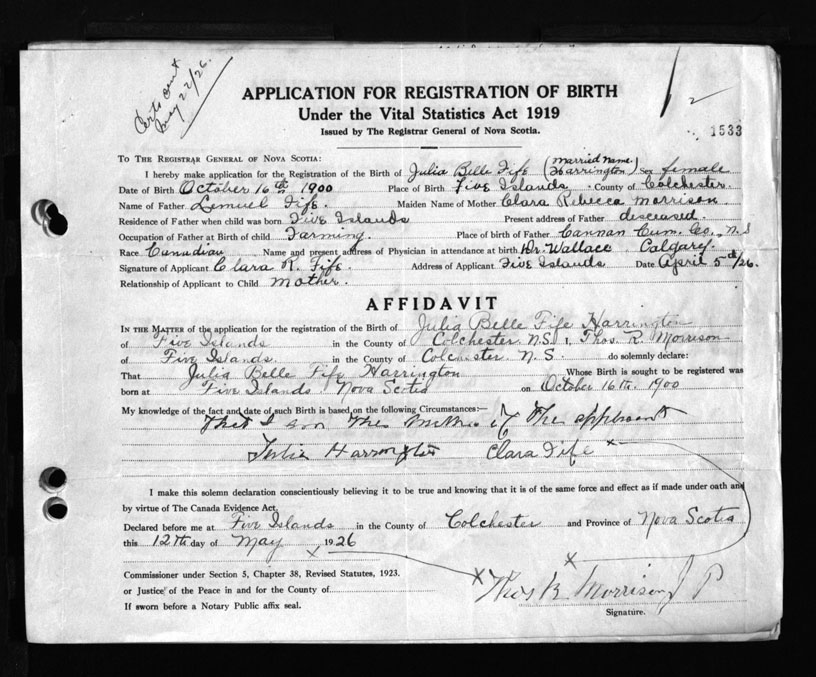 Certs sent
May 22/26.
APPLICATION FOR REGISTRATION OF BIRTH
Under the Vital Statistics Act 1919
Issued by The Registrar General of Nova Scotia.
1533
TO THE REGISTRAR GENERAL OF NOVA SCOTIA:
I hereby make application for the Registration of the Birth of Julia Belle Fife (Married Name. Harrington) Sex female
Date of Birth October 16th 1900 Place of Birth Five Islands County of Colchester.
Name of Father Lemuel Fife. Maiden Name of Mother Clara Rebecca Morrison
Residence of Father when child was born Five Islands Present address of Father desceased.
Occupation of Father at Birth of child Farming. Place of birth of Father Cannan Cum. Co., N.S
Race Canadian Name and present address of Physician in attendance at birth Dr. Wallace Calgary.
Signature of Applicant Clara R. Fife. Address of Applicant Five Islands Date April 5th/26.
Relationship of Applicant to Child Mother.
AFFIDAVIT
IN THE MATTER of the application for the registration of the Birth of Julia Belle Fife Harrington
of Five Islands in the County of Colchester N.S. I, Thos. R. Morrison
of Five Islands. in the County of Colchester. N.S. do solemnly declare:
That Julia Belle Fife Harrington Whose Birth is sought to be registered was
born at Five Islands. Nova Scotia on October 16th. 1900
My knowledge of the fact and date of such Birth is based on the following Circumstances:—
That I am the of The applicant
Julia Harrington Clara Fife x
I make this solemn declaration conscientiously believing it to be true and knowing that it is of the same force and effect as if made under oath and
by virtue of The Canada Evidence Act.
Declared before me at Five Islands in the County of Colchester and Province of Nova Scotia
this 12th day of May 1926
Commissioner under Section 5, Chapter 38, Revised Statutes, 1923.
or Justice of the Peace in and for the County of
x Thos R. Morrison J P
If sworn before a Notary Public affix seal.
Signature.